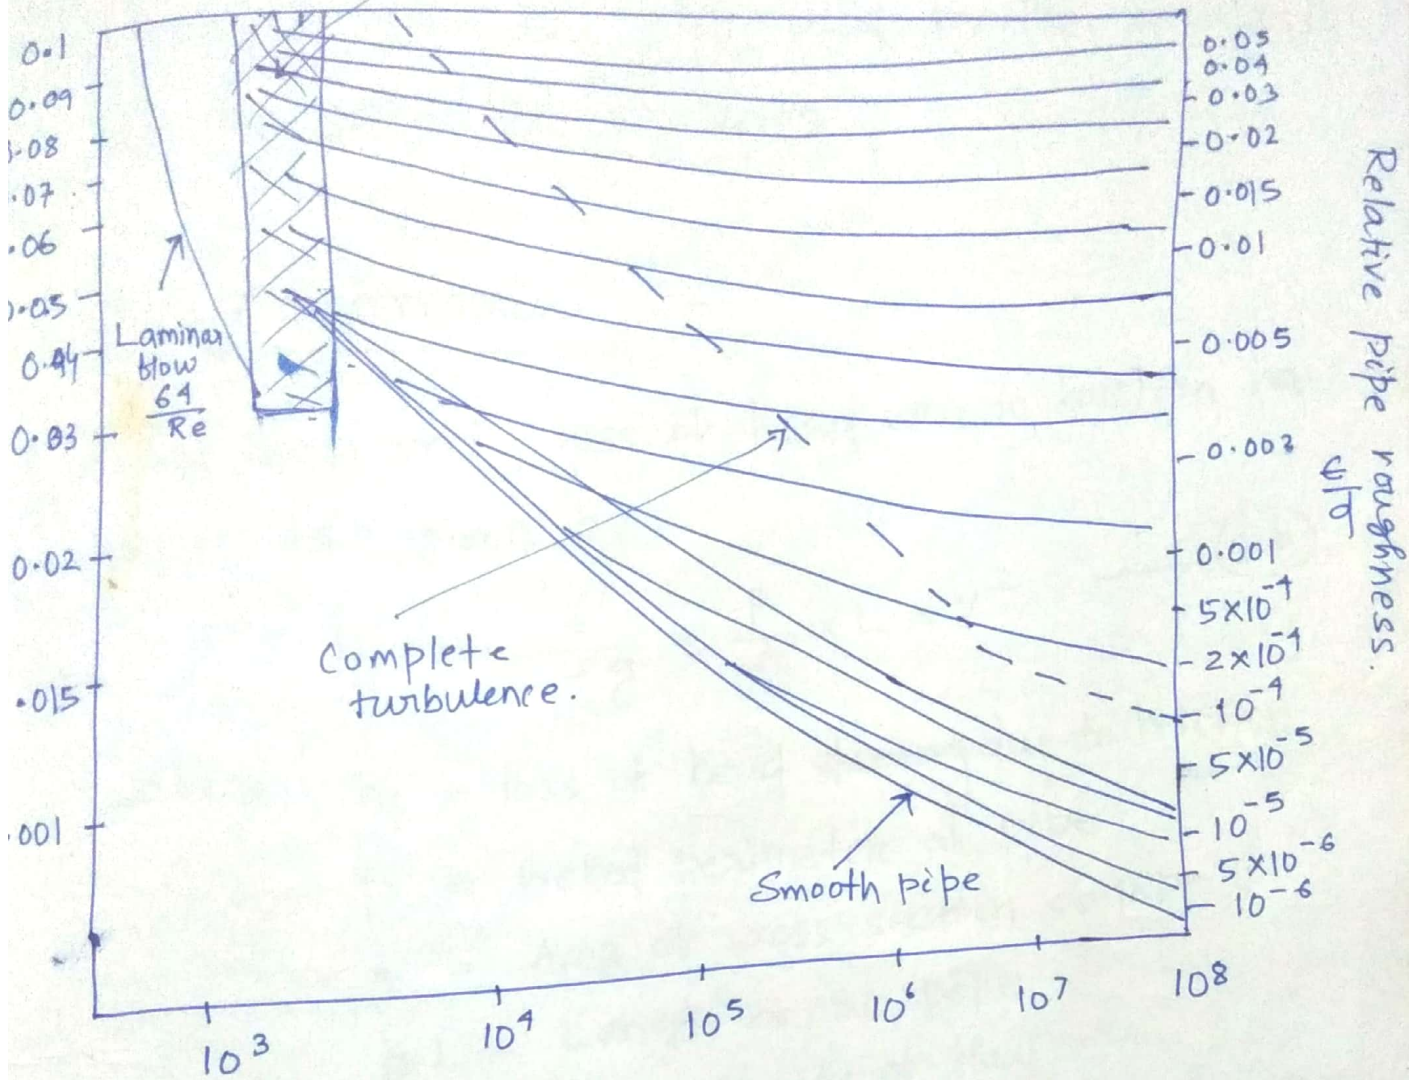 0.1
0.09
.08
.07
.06
.05
0.04
0.03
0.02
.015
001
Laminar
flow
64
Re
Complete
turbulence.
Smooth pipe
10³
10⁴
10⁵
10⁶
10⁷
10⁸
0.05
0.04
0.03
0.02
0.015
0.01
0.005
0.002
0.001
5×10⁻⁴
2×10⁻⁴
10⁻⁴
5×10⁻⁵
10⁻⁵
5×10⁻⁶
10⁻⁶
Relative pipe roughness.